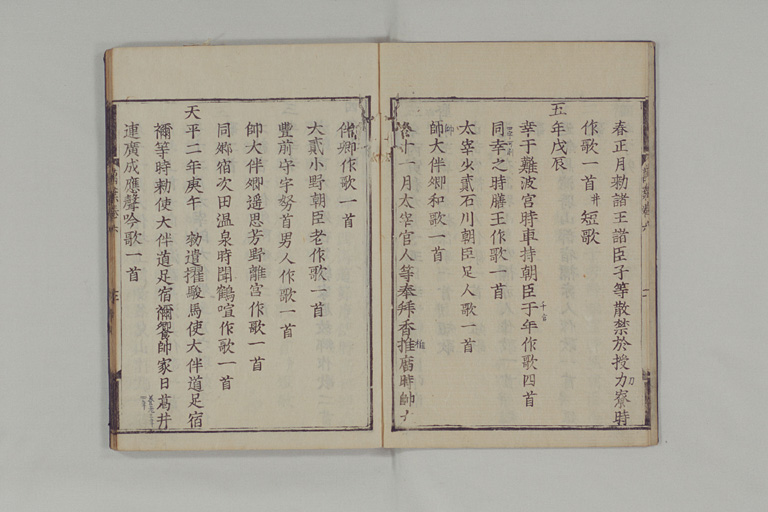 春正月勅諸王諸臣子等散禁於授力寮時
作歌一首并短歌
五年戊辰
幸于難波宮時車持朝臣千年作歌四首
同幸之時膳王作歌一首
太宰少貳石川朝臣足人歌一首
帥大伴卿和歌一首
冬十一月太宰官人等奉拜香椎廟時帥大
伴卿作歌一首
大貳小野朝臣老作歌一首
豐前守宇努首男人作歌一首
帥大伴卿遥思芳野離宮作歌一首
同卿宿次田温泉時聞鶴喧作歌一首
天平二年庚午 勅遣擢駿馬使大伴道足宿
禰等時勅使大伴道足宿禰饗帥家日葛井
連廣成應聲吟歌一首